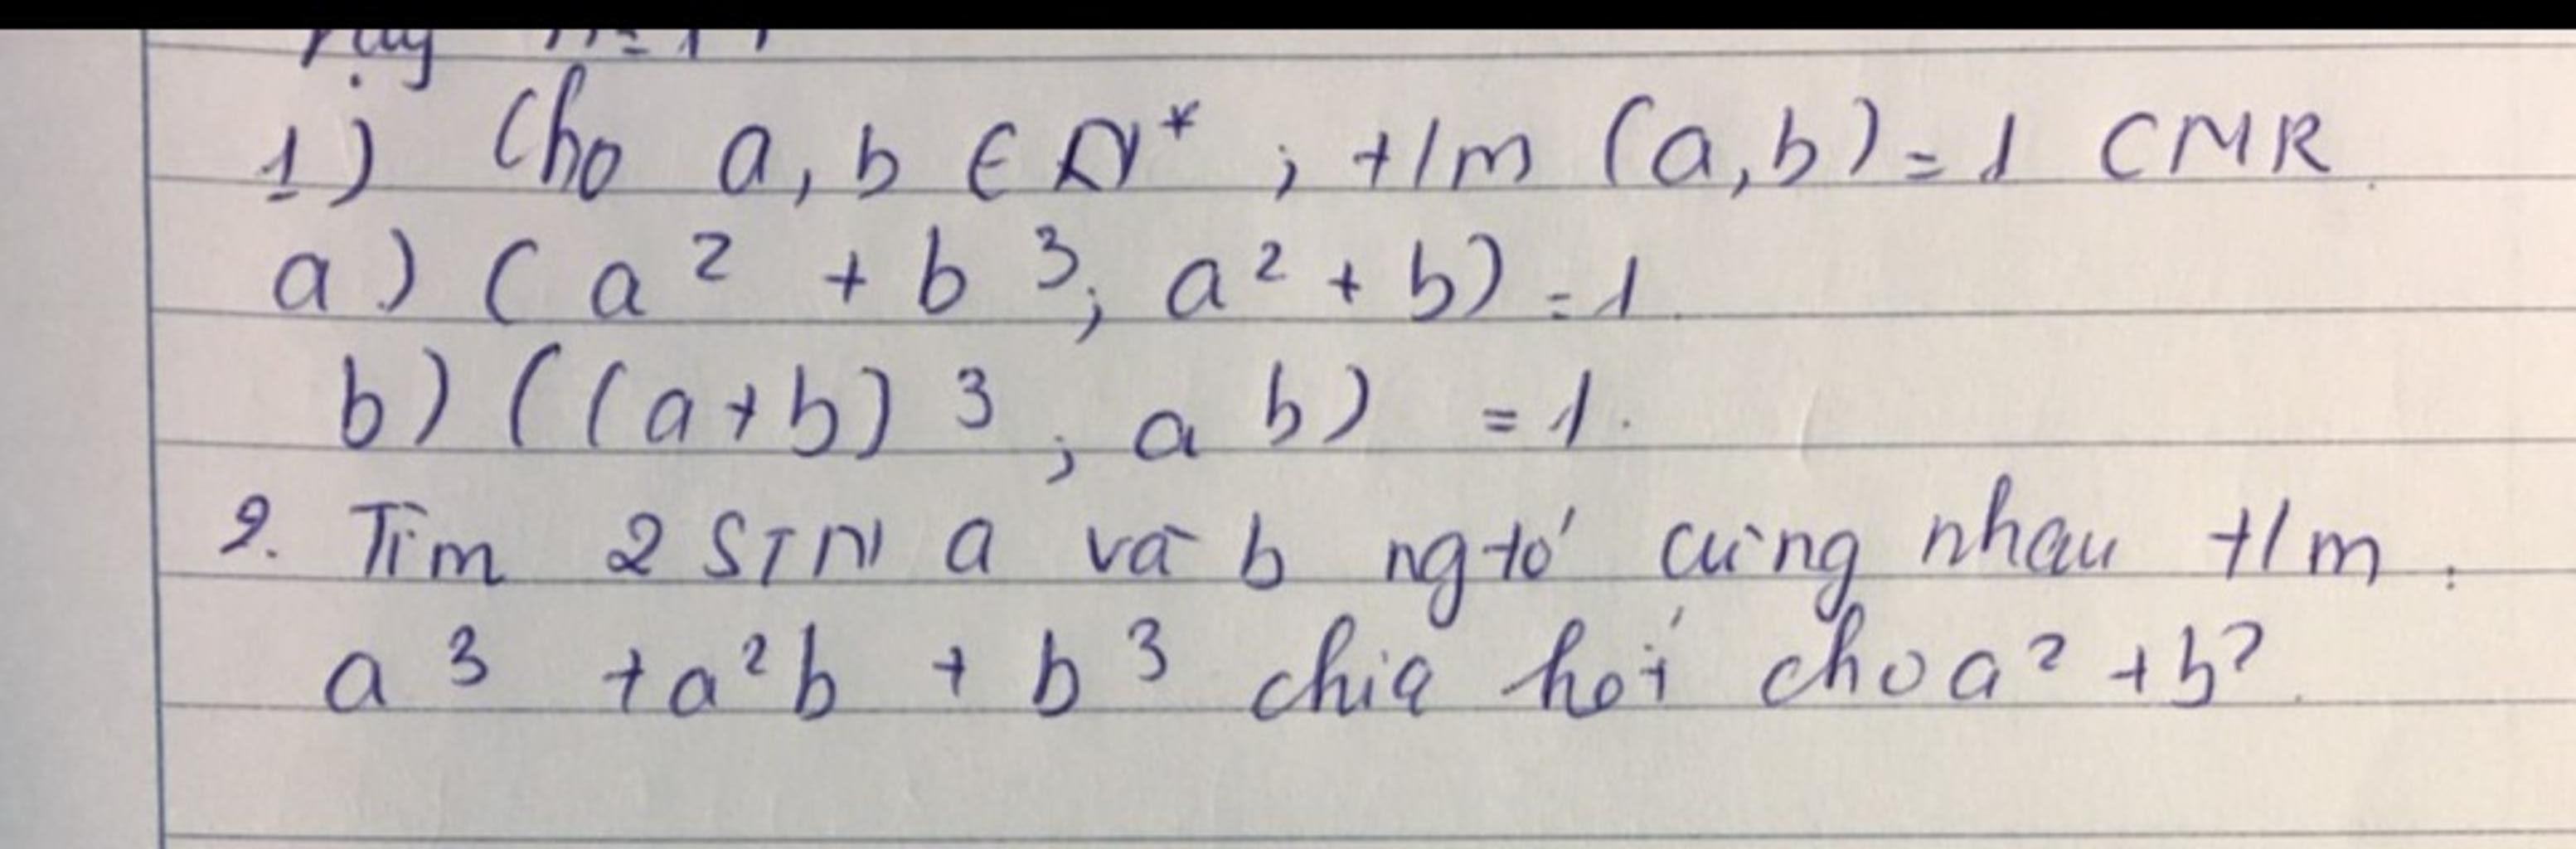 1) Cho a, b ∈ N* ; t/m (a, b) = 1 CMR.
a) ( a² + b³; a² + b) = 1.
b) ((a+b)³; ab) = 1.
2. Tìm 2 STN a và b ng tố cùng nhau t/m :
a³ + a²b + b³ chia hết cho a² + b²